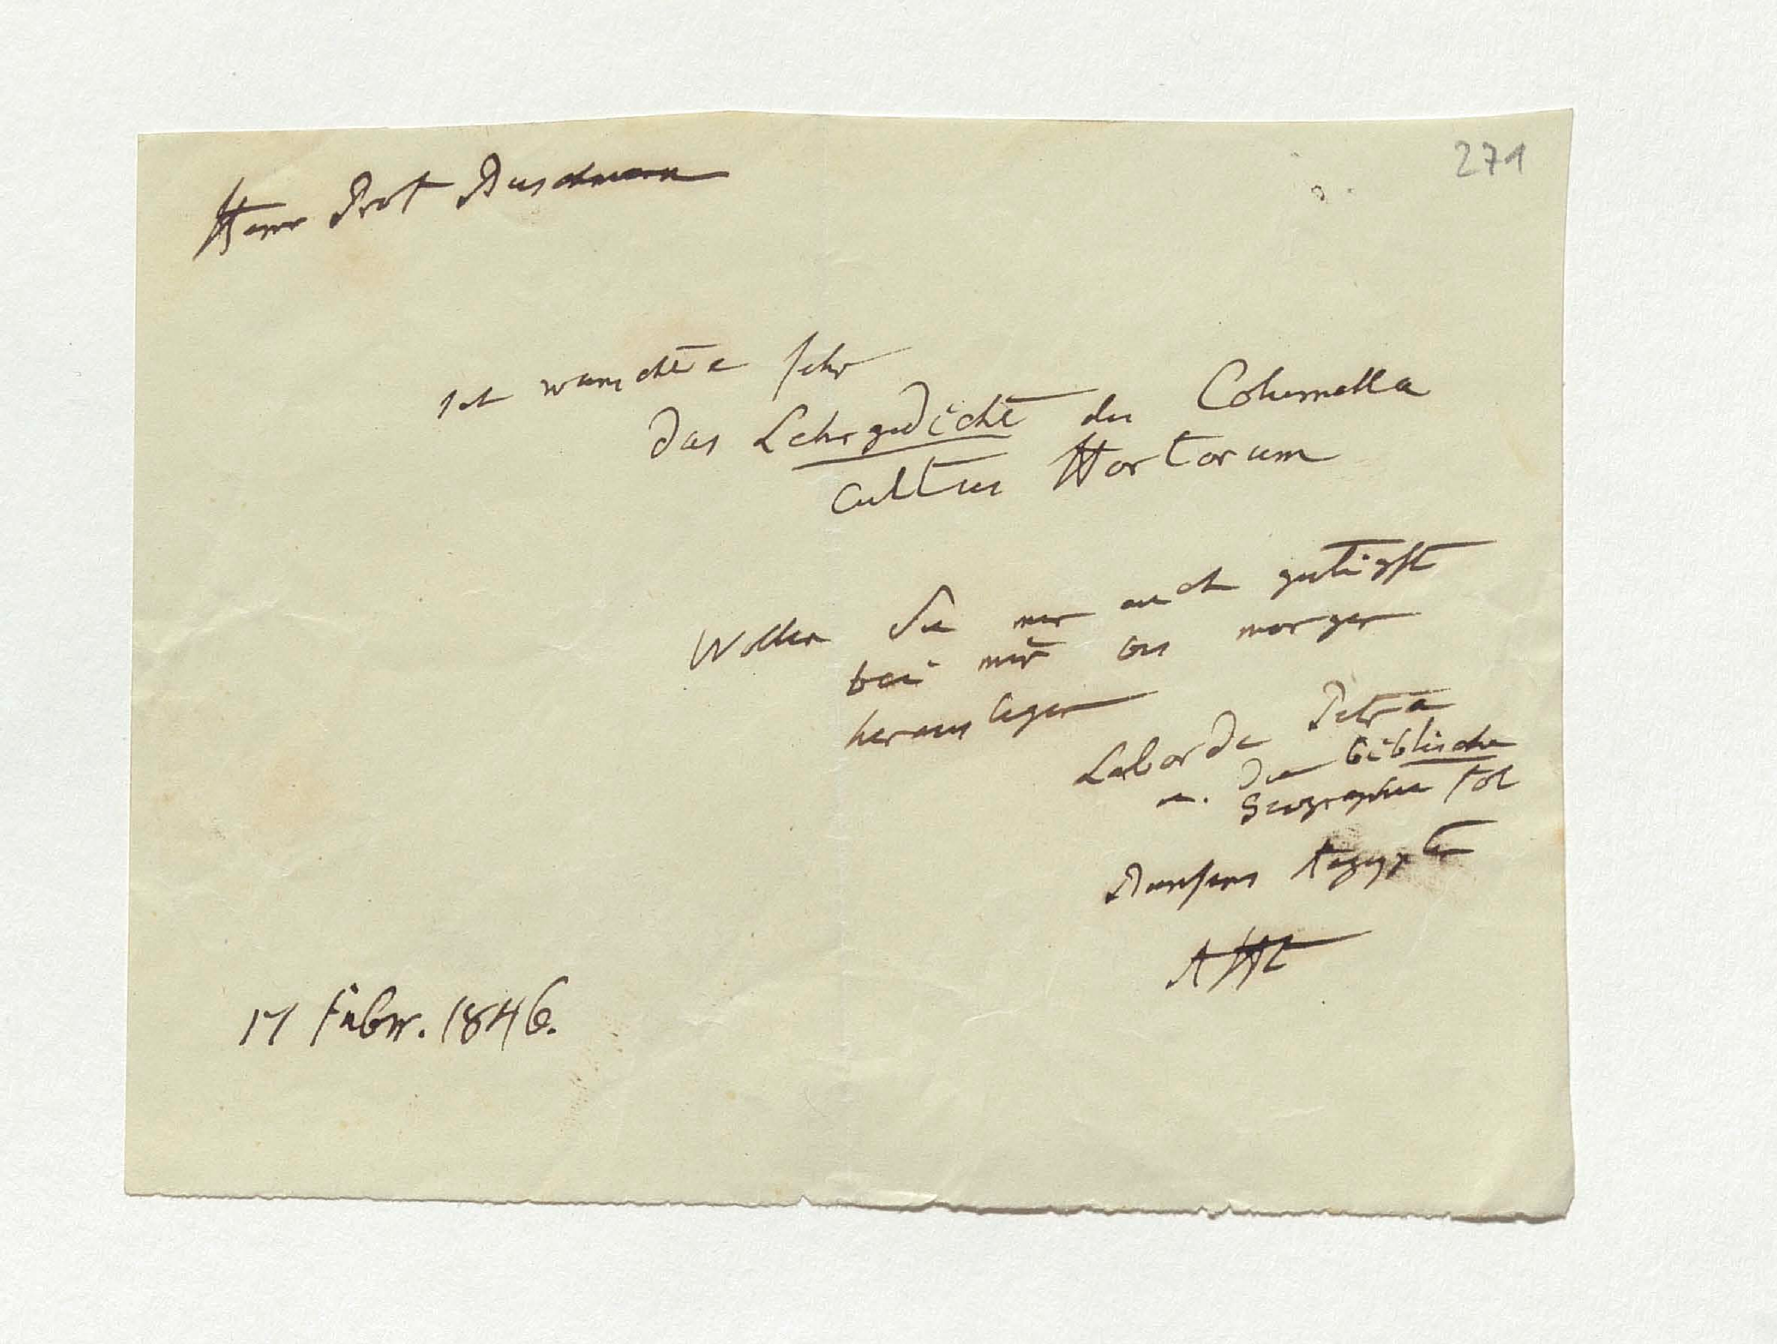 271
Herrn Prof Buschmann
Ich wünschte sehr
das Lehrgedicht des Columella
Cultus Hortorum
Wollen Sie mir auch gütigst
bei mir bis morgen
herauslegen
Laborde Petra
u. die biblische
Geographie fol
Bunsens Aegypten
AHt
17 Febr. 1846.